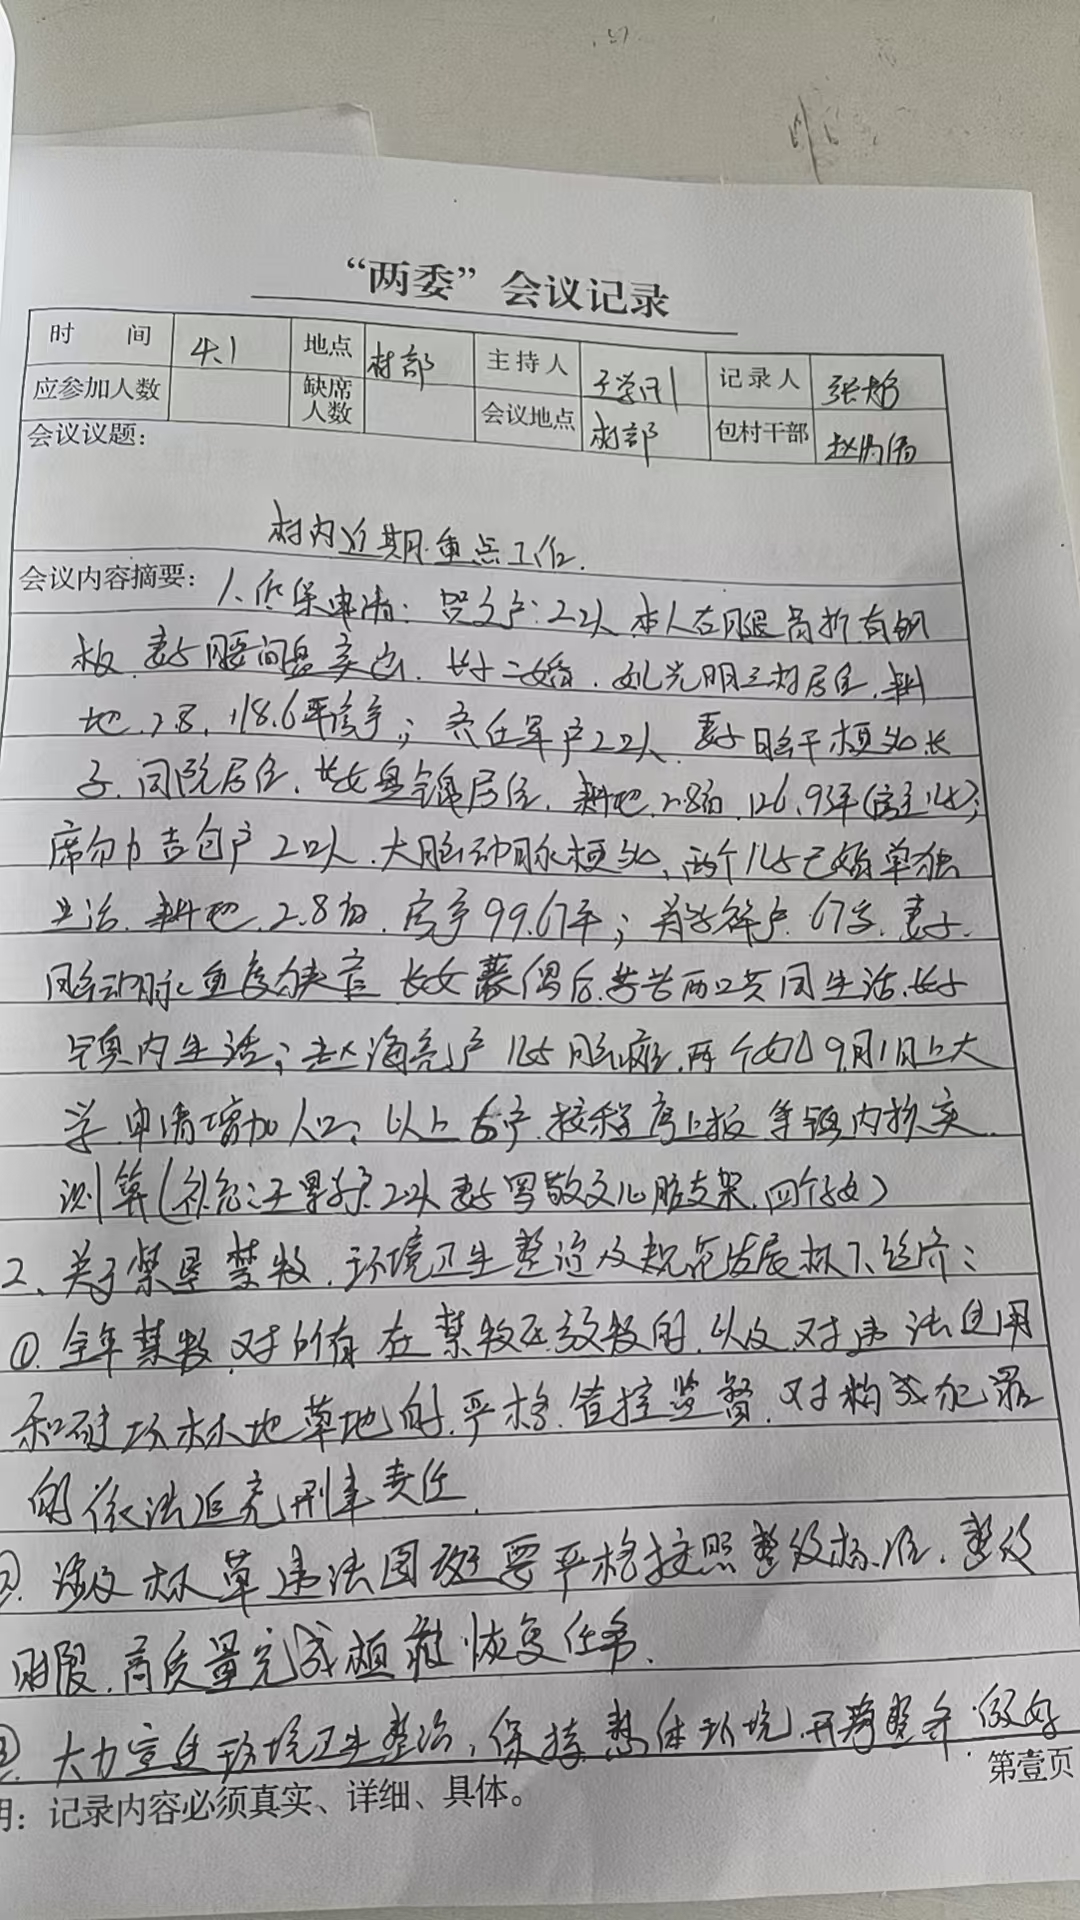 “两委”会议记录
时 间 4.1 地点 村部 主持人 记录人 张
应参加人数 缺席人数 会议地点 村部 包村干部 赵
会议议题：
村内近期重点工作.
会议内容摘要： 1、低保申请： 户：2口人 本人右腿骨折有钢
板 妻子腰间盘突出 长子二婚 光明三村居住 耕
地 2.8, 118.6平房子； 户2口人 妻子脑干梗 长
子 同院居住，长女盘锦居住 耕地 2.8亩 126.93平(房主儿子)；
席 吉 户 2口人 大脑动脉梗 两个儿子已婚单独
生活 耕地 2.8亩 房子99.67平； 户 67岁 妻子
脑动脉重度 长女丧偶后 两口共同生活 长子
镇内生活； 赵海亮户 儿子脑瘫 两个女儿9月1日上大
学 申请增加人口； 以上 户 按程序上报 等镇内核实
测算(补充: 王 2口人 妻子 敬文心脏支架 四个子女)
2、关于禁垦禁牧 环境卫生整治及规范发展林下经济：
① 全年禁牧 对所有在禁牧区放牧的 以及对违法使用
和破坏林地草地的 严格管控监督 对构成犯罪
的依法追究刑事责任
②. 涉及林草违法图斑要严格按照整改标准、整改
时限 高质量完成植被恢复任务.
③. 大力宣传环境卫生整治, 保持整体环境 干净整齐 做好
第壹页
明：记录内容必须真实、详细、具体。